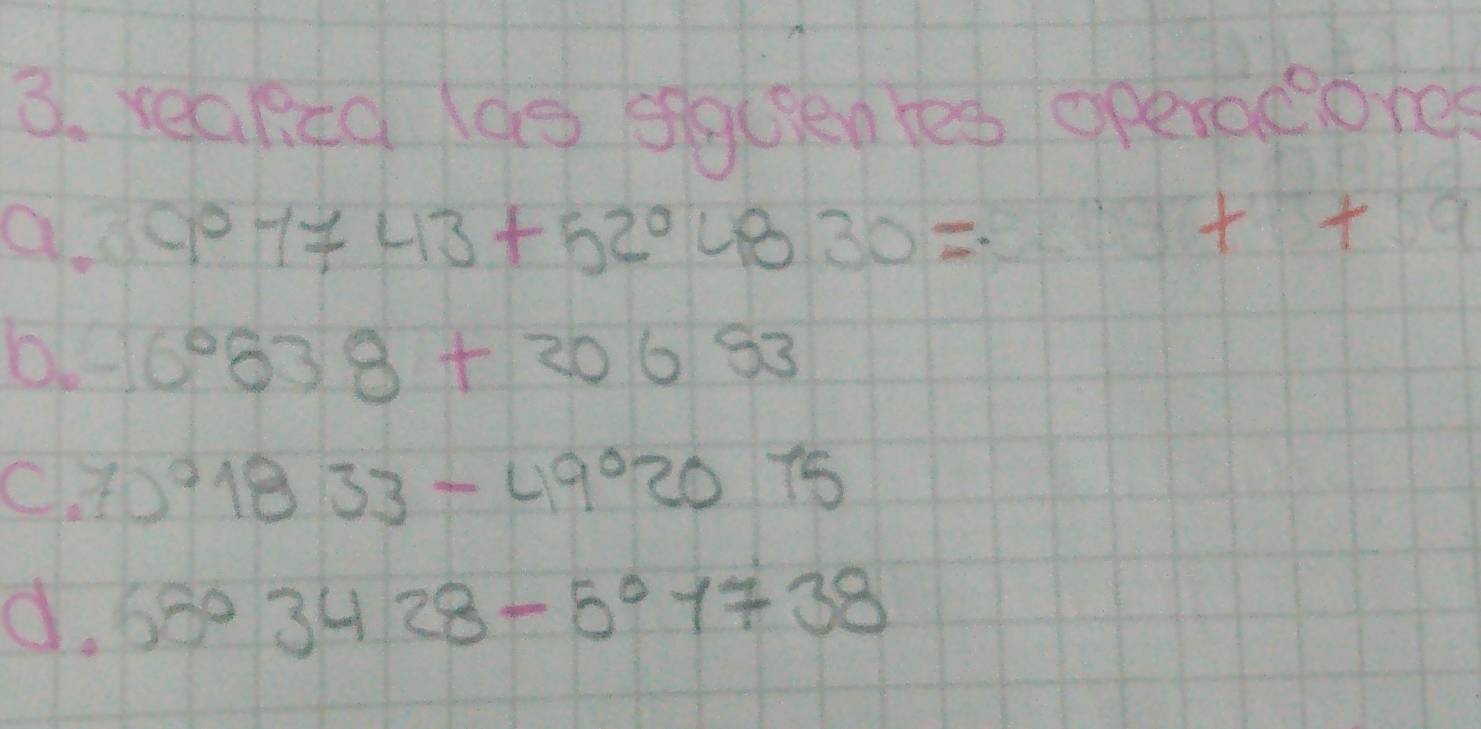 3. realiza las siguientes operaciones
a. 39° 17 43 + 52° 48 30 =
b. 16° 53 8 + 20 6 53
c. 70° 18 33 - 49° 20 15
d. 58° 34 28 - 5° 17 38